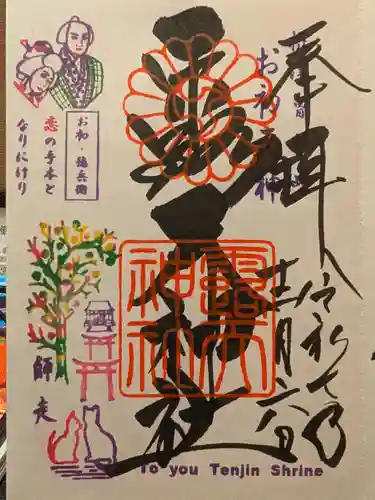 奉拝
お初天神
露天神社
令和七年
十二月六日
露天
神社
お初・徳兵衛
恋の手本と
なりにけり
師走
To you Tenjin Shrine